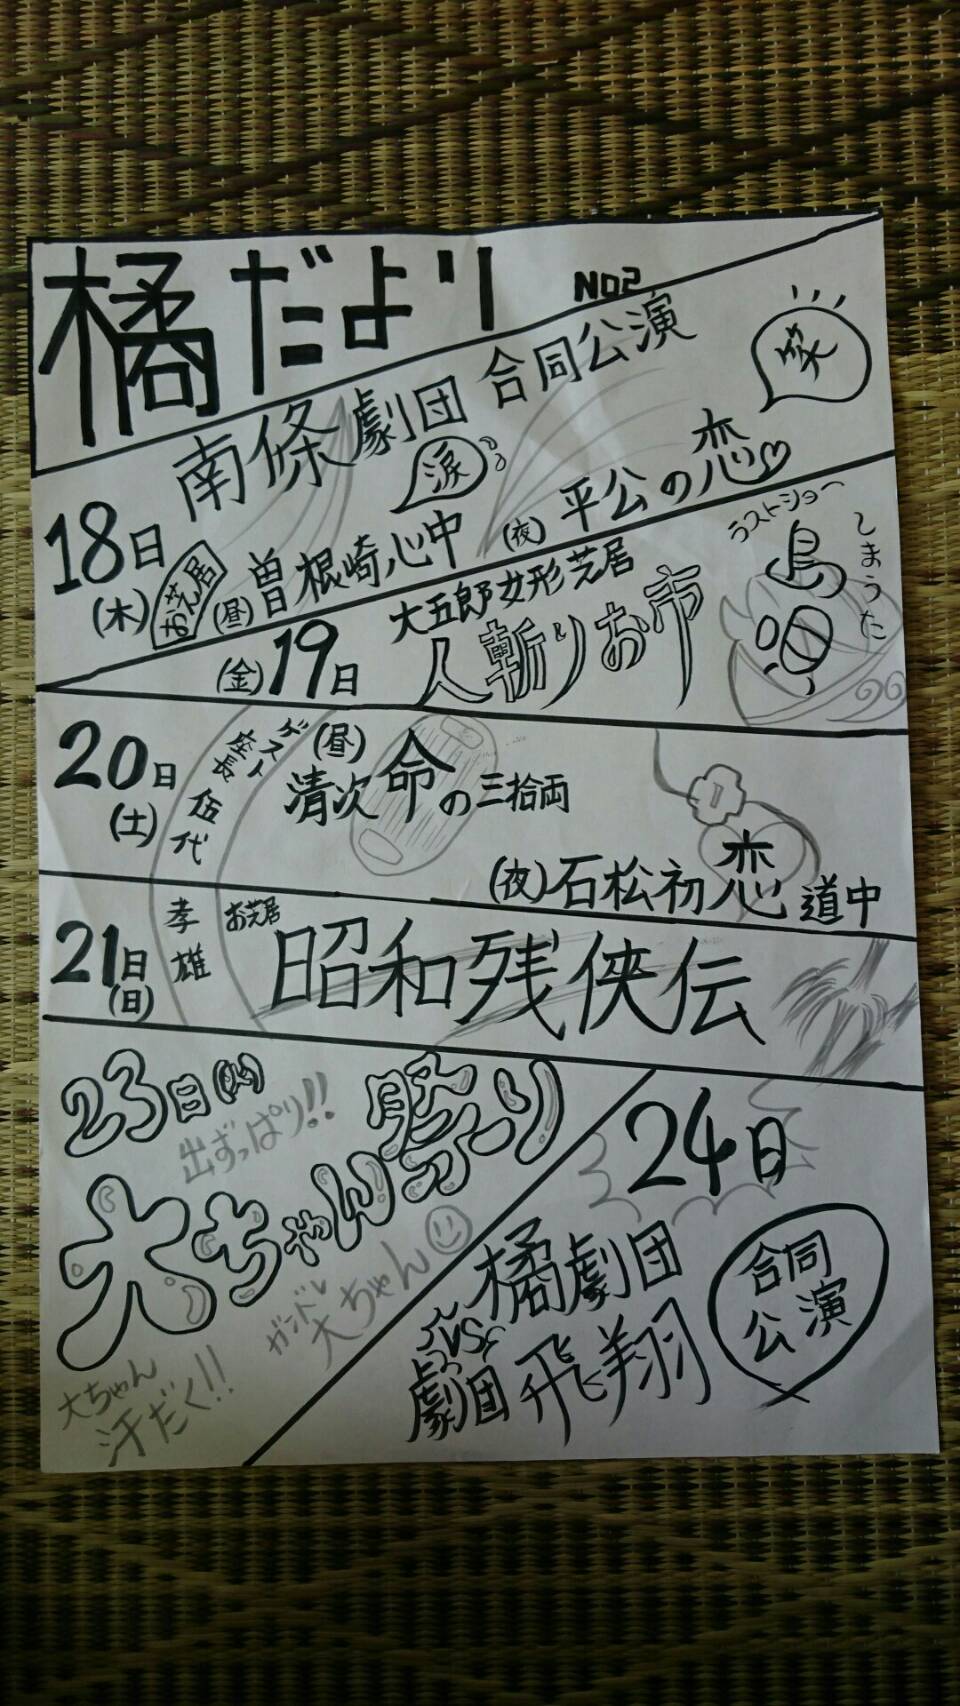 橘だより No2
南條劇団 合同公演
18日(木)
お芝居
(昼)曽根崎心中
涙
(夜)平公の恋♡
笑
(金)19日
大五郎女形芝居
人斬りお市
ラストショー
島唄
しまうた
20日(土)
ゲスト
座長 伍代孝雄
(昼)清次命の三拾両
(夜)石松初恋道中
21日(日)
お芝居
昭和残侠伝
23日(火)
出ずっぱり!!
大ちゃん祭り
ガンバレ
大ちゃん
大ちゃん
汗だく!!
24日
橘劇団
VS
劇団飛翔
合同
公演